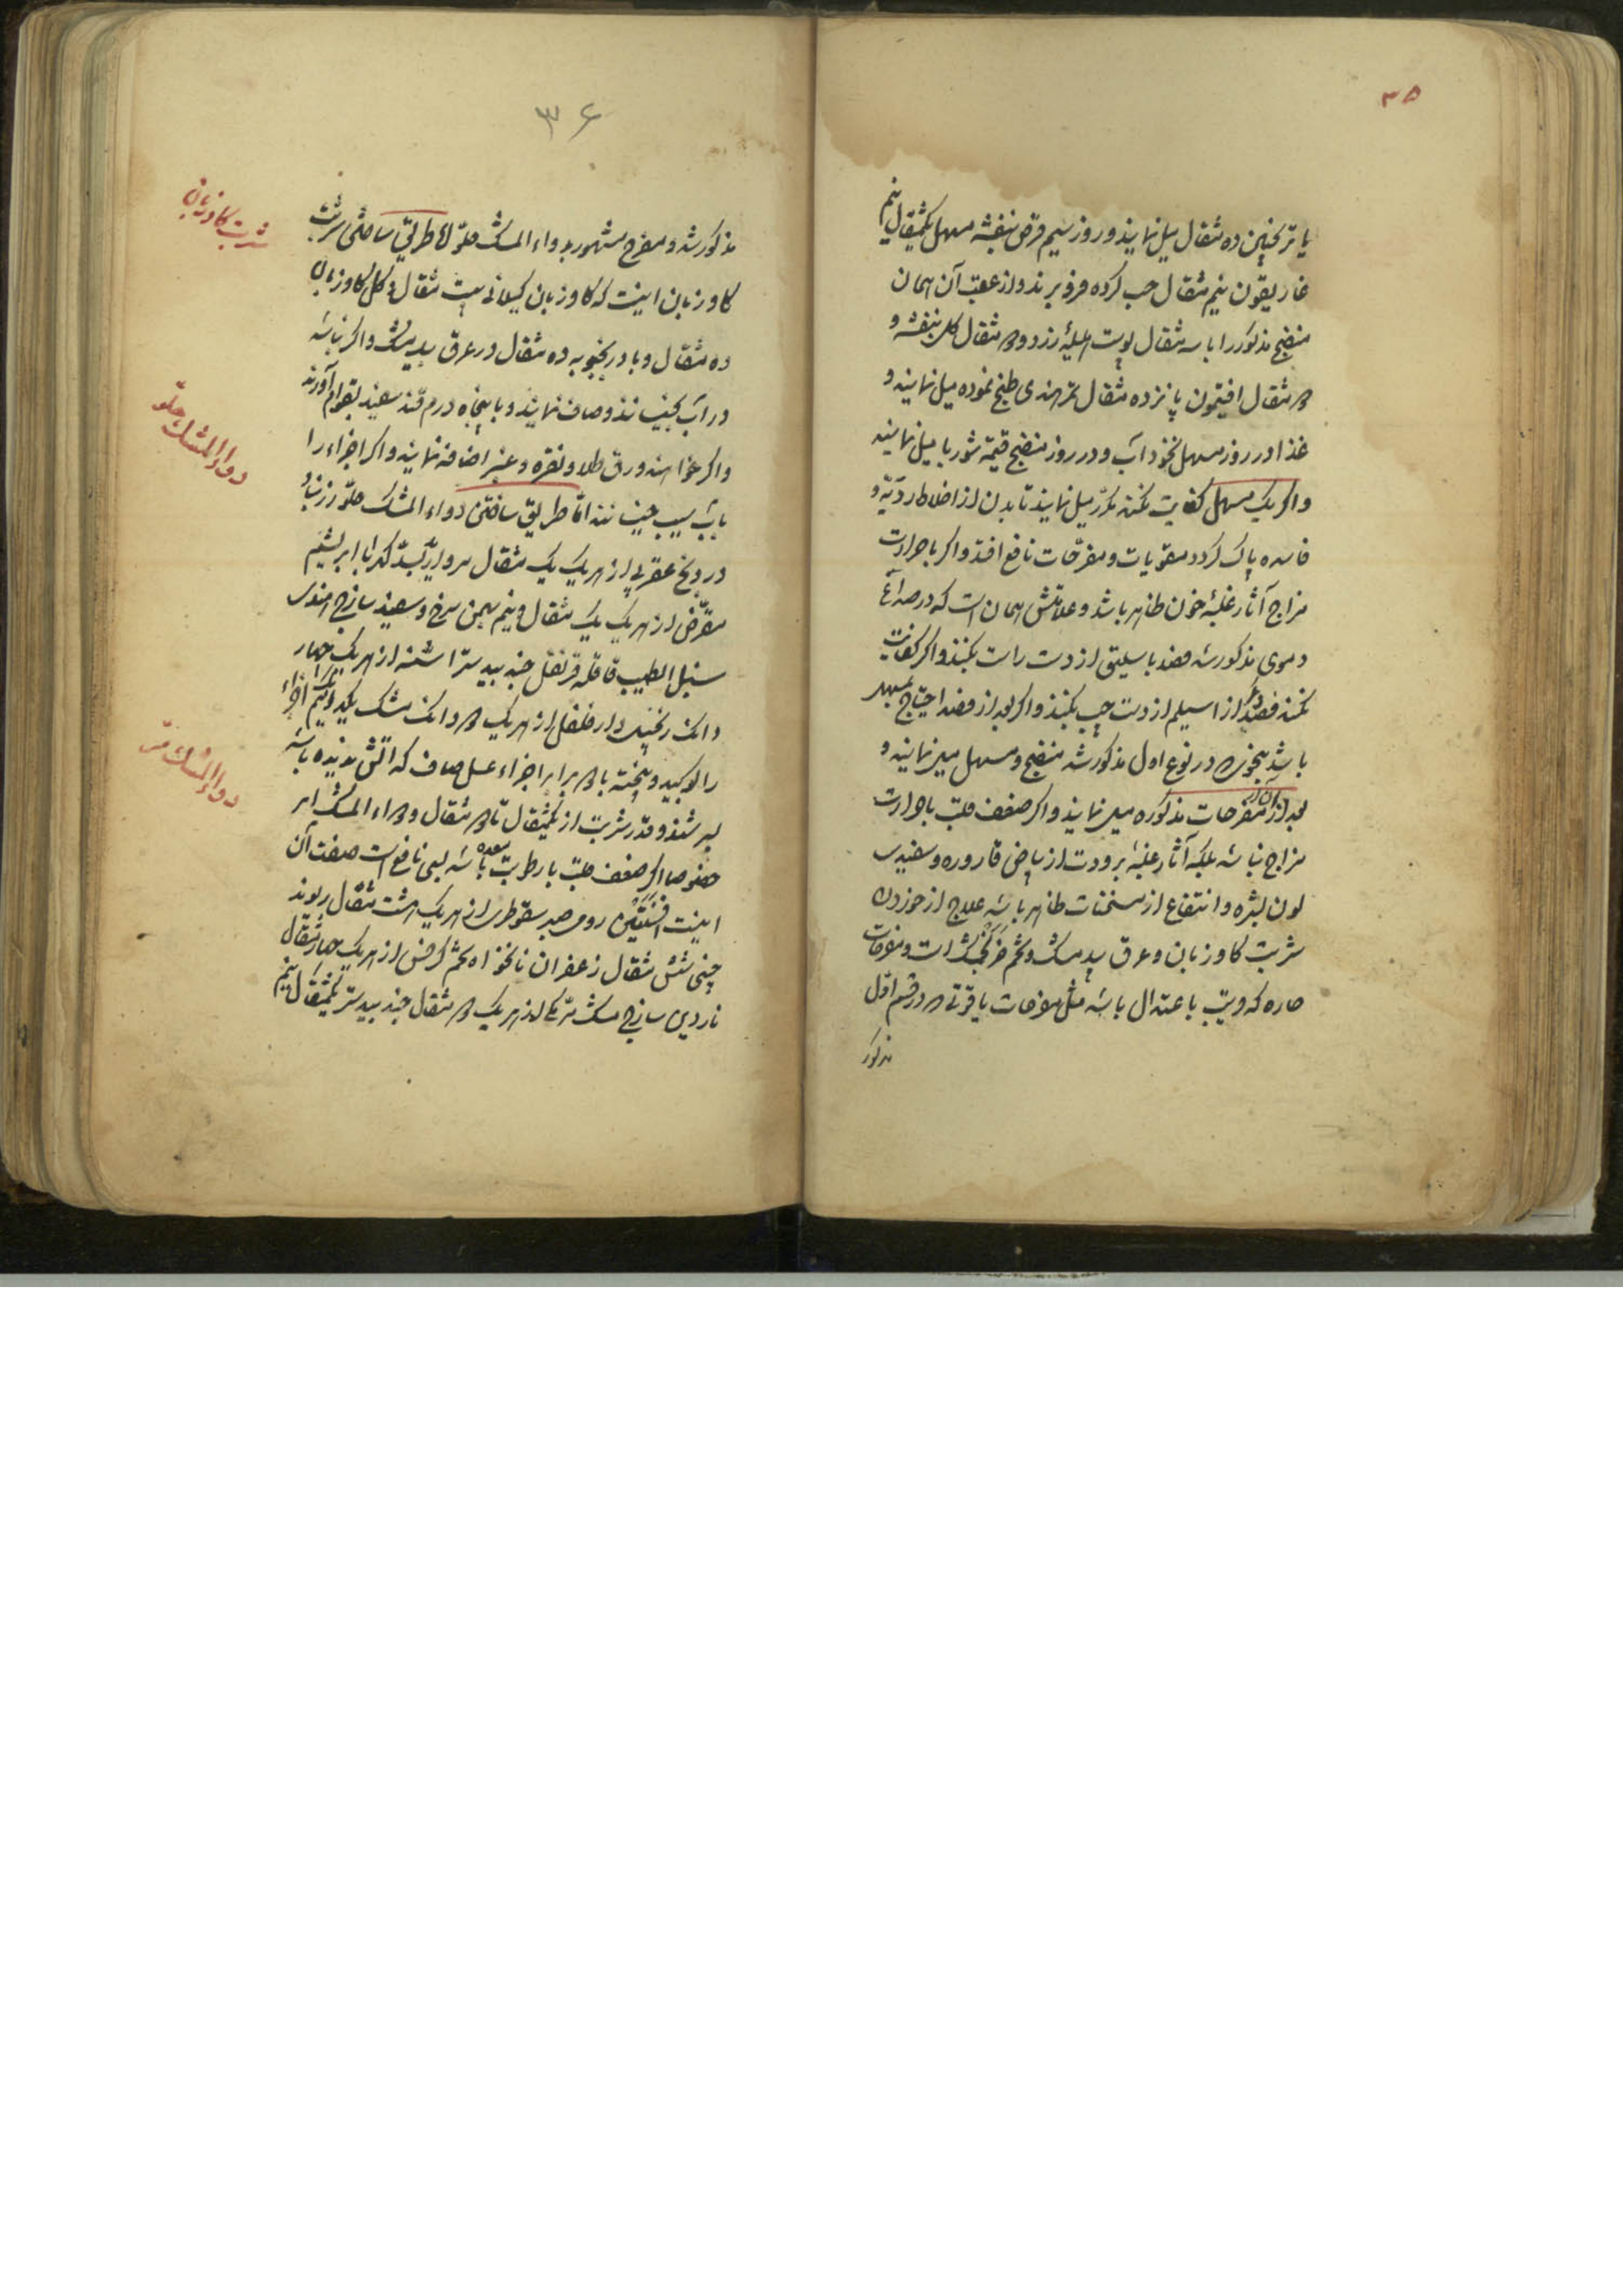 ۳۵
یا ترنجبین ده مثقال میل نمایند و روز سیم قرص بنفشه مسهل یکمثقال نیم
غاریقون نیم مثقال حب کرده فرو برند و از عقب آن همان
منضج مذکور را با سه مثقال پوست هلیلهٔ زرد و دو مثقال گل بنفشه و
دو مثقال افتیمون پانزده مثقال تمر هندی طبخ نموده میل نمایند و
غذا در روز مسهل نخود آب و در روز منضج قیمه شوربا میل نمایند
و اگر یک مسهل کفایت نکند مکرّر میل نمایند تا بدن از اخلاط ردیّه و
فاسده پاک گردد مقویات و مفرّحات نافع افتد و اگر با حرارت
مزاج آثار غلبهٔ خون ظاهر باشد و علامتش همان است که در صداع
دموی مذکور شد فصد باسلیق از دست راست بکنند و اگر کفایت
نکند فصد دیگر از اسیلم از دست چپ بکنند و اگر بعد از فصد احتیاج بمسهل
باشد بنحوی که در نوع اول مذکور شد منضج و مسهل میل نمایند و
بعد از آن از مفرحات مذکوره میل نمایند و اگر ضعف قلب با حرارت
مزاج نباشد بلکه آثار غلبهٔ برودت از بیاض قاروره و سفیدی
لون بشره و انتفاع از مسخنات ظاهر باشد علاج از خوردن
شربت کاوزبان و عرق بیدمشک و تخم فرنجمشک است و مفرحات
حاره که قریب باعتدال باشد مثل مفرحات یاقوتی که در قسم اوّل
مذکور
۳۶
مذکور شد و مفرح مشهور بدواء المسک حلو امّا طریق ساختن شربت
کاوزبان اینست که کاوزبان کیلانی بیست مثقال و گل کاوزبان
ده مثقال و بادرنجبویه ده مثقال در عرق بیدمشک و اگر نباشد
در آب بجیسانند و صاف نمایند و با پنجاه درم قند سفید بقوام آورند
و اگر خواهند ورق طلا و نقره و عنبر اضافه نمایند و اگر اجزاء را
بآب سیب خیسانند امّا طریق ساختن دواء المسک حلو زرنباد
درونج عقربی از هر یک یک مثقال مروارید بسّد کهربا ابریشم
مقرّض از هر یک یک مثقال و نیم بهمن سرخ و سفید ساذج هندی
سنبل الطیب قاقله قرنفل جندبیدستر اشنه از هر یک چهار
دانک زنجبیل دار فلفل از هر یک دو دانک مشک یکدانک و نیم اجزاء
را کوبیده و بیخته با دو برابر اجزاء عسل صاف که آتش ندیده باشد
بسرشند و قدر شربت از یکمثقال تا دو مثقال و دواء المسک مر
خصوصا اگر ضعف قلب با رطوبت معده باشد بسی نافع است صفت آن
اینست افسنتین رومی صبر سقوطری از هر یک هشت مثقال ریوند
چینی شش مثقال زعفران نانخواه تخم کرفس از هر یک چهار مثقال
ناردین ساذج مشک مر مکی از هر یک دو مثقال جندبیدستر یکمثقال نیم
شربت کاوزبان
دواء المسک حلو
دواء المسک مرّ